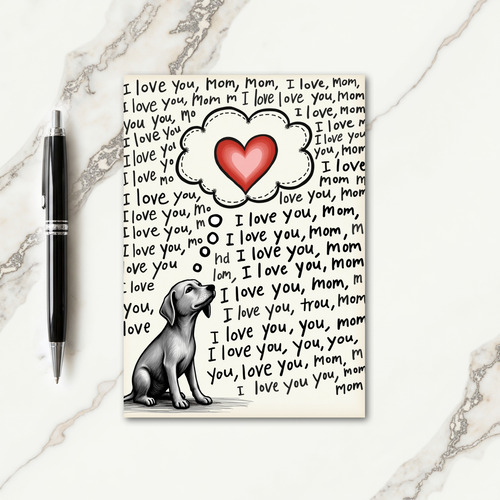 I love you, mom, mom, I love, mom,
I love you, mom m I love love you, mom,
you you, mo I love, mom,
I love you I love m
I love yo I love you,
I love yo you, mom
I love mo I love
mom m
I love you, love you, mom
I love you, mo I love you, mom,
I love you, m I love you, mom, m
I love you, mo I love you, mom
love you hd I love you, mom
I love lom, I love you, mom
you, I love you, mom, m
love I love you, trou, mom
I love you, you, mom
I love you, you, you,
you, love you, mom, m
I love you you, mom
mom